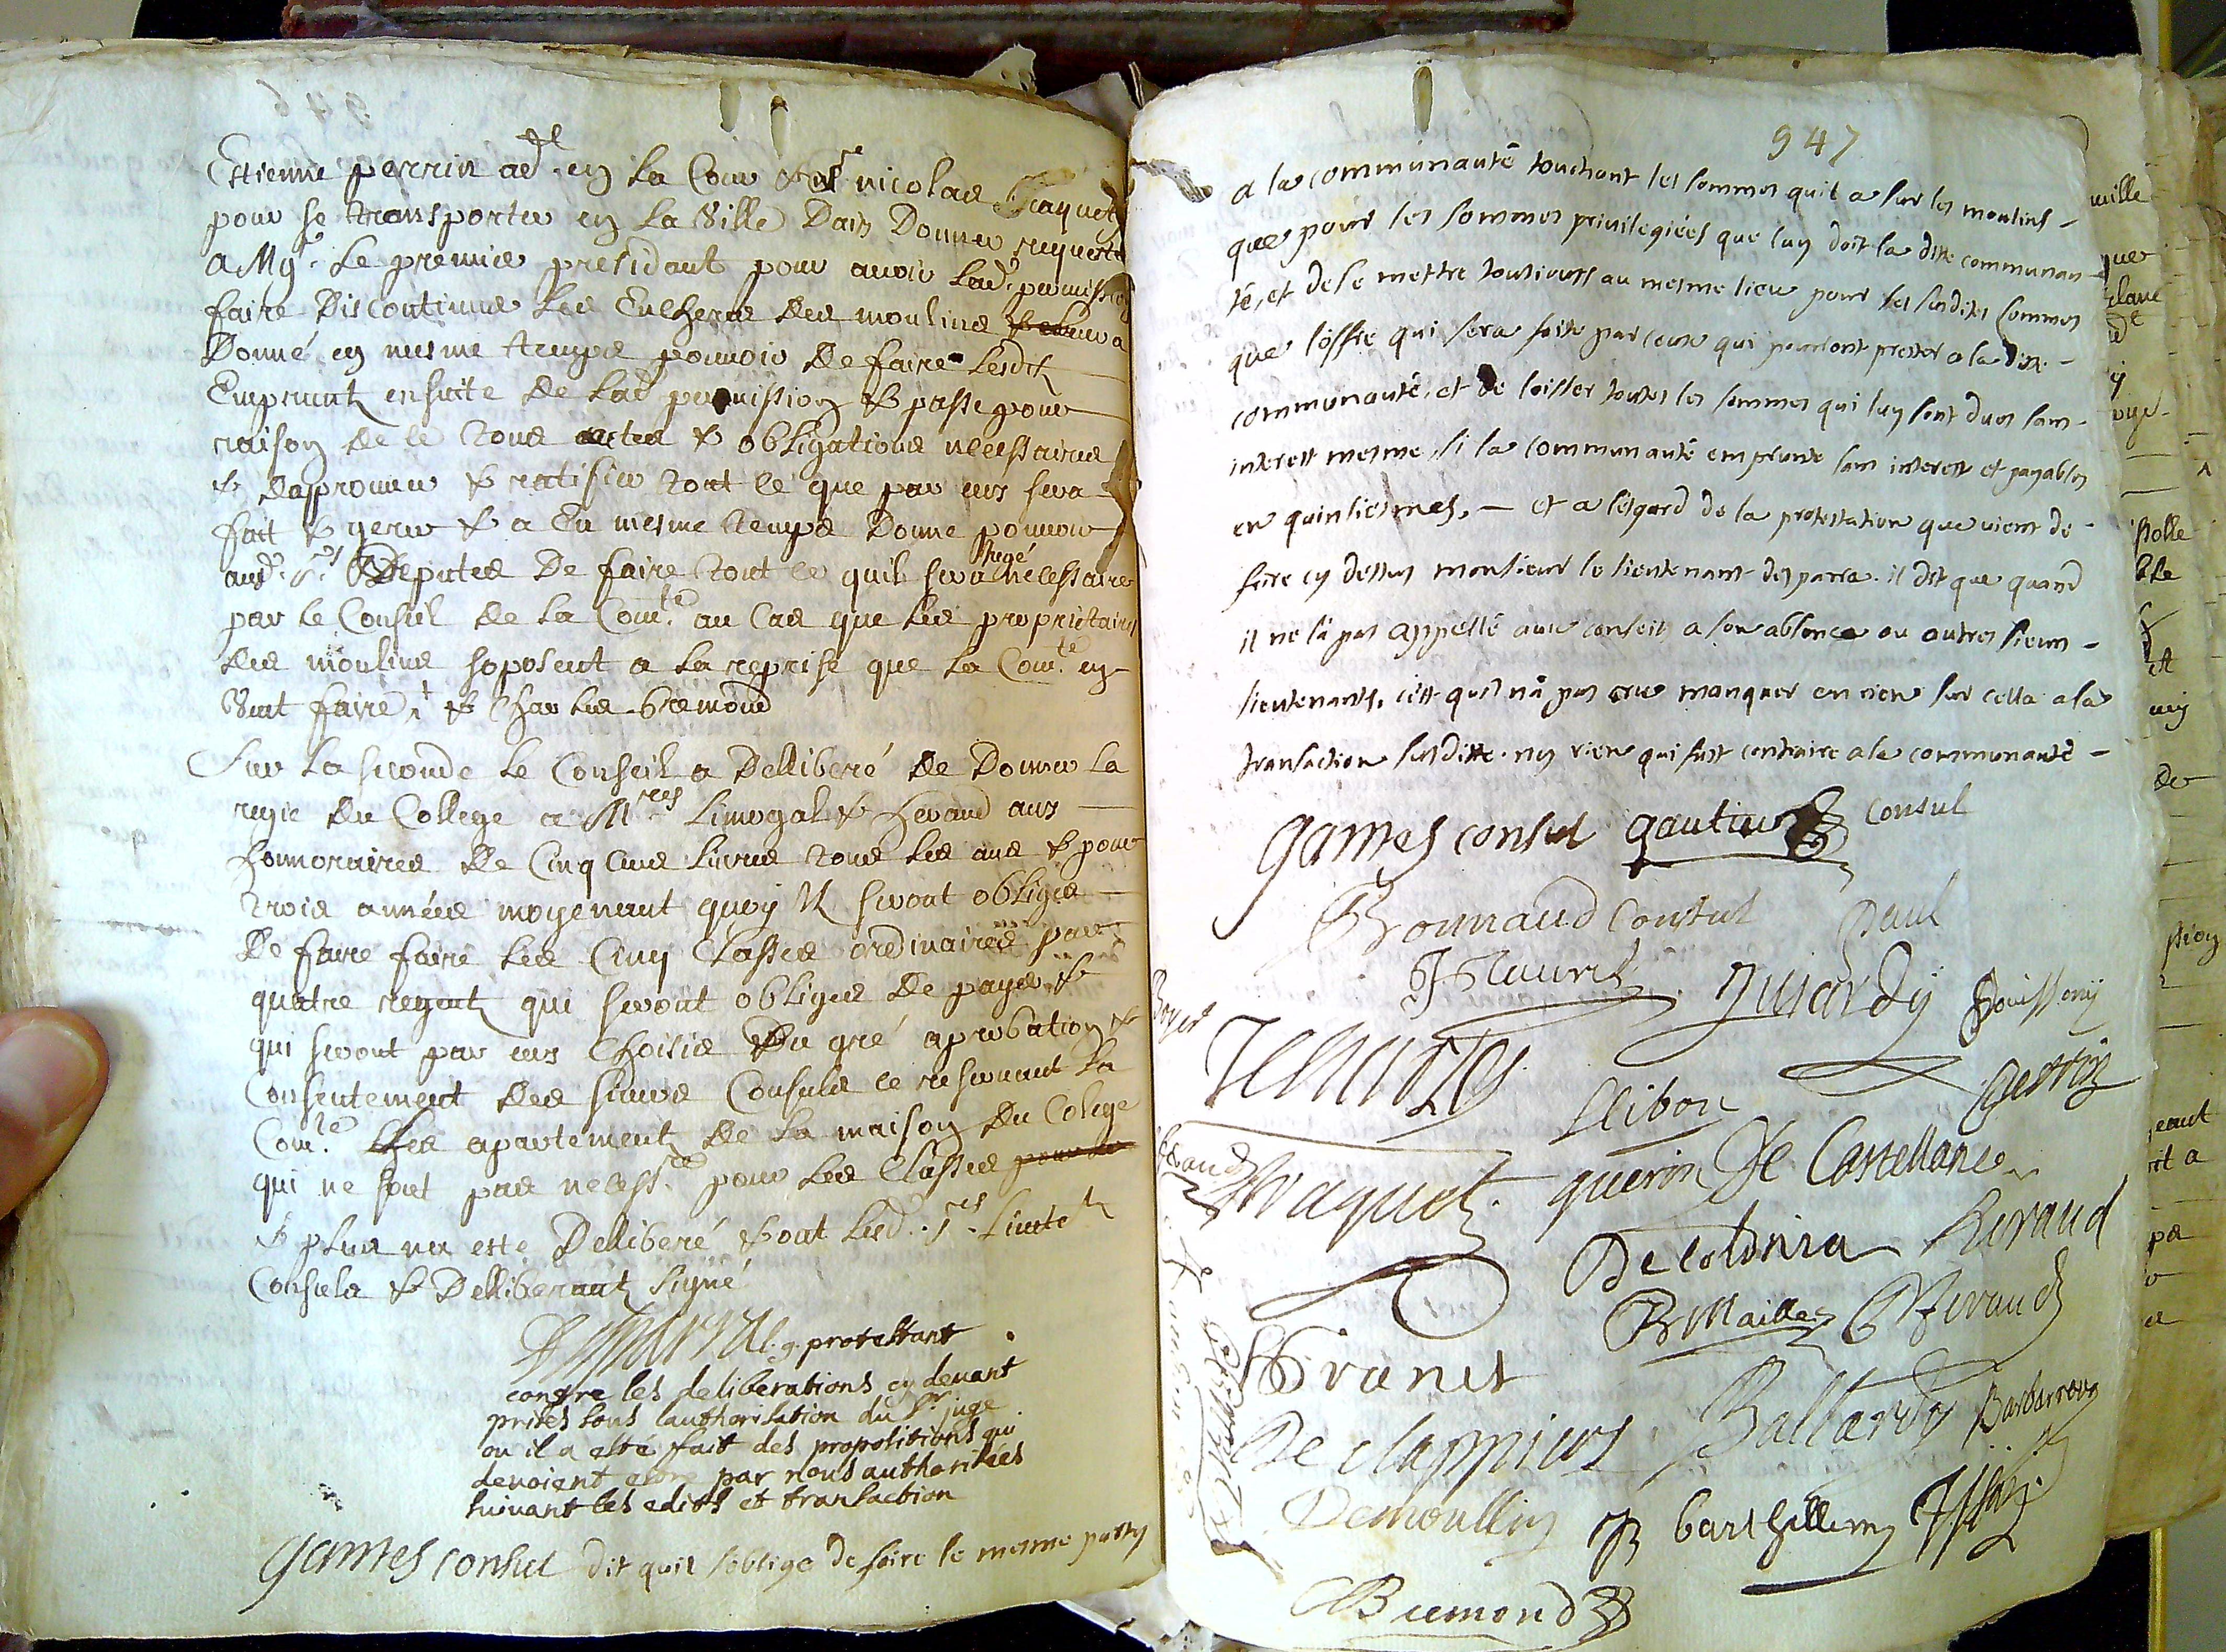 Estienne perrin ad.t en La Cour & m.re nicolas Fraquet
pour se transporter en La Ville Daix Donner requeste
a Mg.r Le premier presidant pour avoir Lad. permission
faire Discontinuer Les Encheres des moulins
Donné en mesme temps pouvoir De faire Lesdits
Emprunts ensuite De Lad permission & passe pour
raison de ce tous actes & obligations necessaires
& daprouver & ratifier tout ce que par eux sera
fait & gere & a En mesme temps Donne pouvoir
ausd. s.rs Deputes De faire tout ce quil sera jugé necessaire
par le Conseil de La Com.te au Cas que Les proprietaires
des moulins soposent a La reprise que La Com.te en
Veut faire & Charles bremond
Sur La seconde Le Conseil a Delliberé de Donner La
regie du College a M.res Limogal & heraud aux
honnoraires De Cinq Cens Livres tous Les ans & pour
trois années moyenant quoy ils seront obliges
De faire faire Les Cinq Classes ordinaires par
quatre regents qui seront obliges De payer &
qui seront par eux Choisis Du gré aprobation &
Consentement des sieurs Consuls ce reservant La
Com.te Les apartements De La maison Du Colege
qui ne sont pas necess.res pour Les Classes
& plus na este Delliberé & ont Lesd. s.rs Lieute.t
Consuls & Delliberants signé
l.g. protestant
contre les deliberations cy devant
prises sous lauthorisation du s.r juge
ou il a esté fait des propositions qui
devoient estre par nous authorisées
suivant les edits et transaction
gantes consul dit quil soblige de faire le mesme party
947
a la communauté touchant les sommes quil a sur les moulins
que pour les sommes privilegiées que luy doit la ditte communau
té, et de se mettre tousiours au mesme lieu pour les susdites sommes
que l'offre qui sera faitte par ceux qui pourront prester a la ditte
communauté, et de laisser toutes les sommes qui luy sont dues sans
interest mesme si la communauté emprunte sans interest et payables
en quinsiesmes, et a l'esgard de la protestation que vient de
faire cy dessus monsieur le lieutenant desparra il dit que quand
il ne la pas appellé aux conseils a son absence ou autres sieurs
lieutenants, c'est quil n'a pas creu manquer en rien sur cella a la
transaction susditte ny rien qui fust contraire a la communauté
gantes consul gautier Consul
Bonnaud Consul Paul
J Maurel Jujardy Bouissony
Boyer
Clibon perrin
heraud Fraquet guerin De Castellane
Decolonia heraud
B Maille Giraud
Brunet
De clappiers Ballardy Barbarroux
Demoullin JB barthellemy Issaly
CBremond